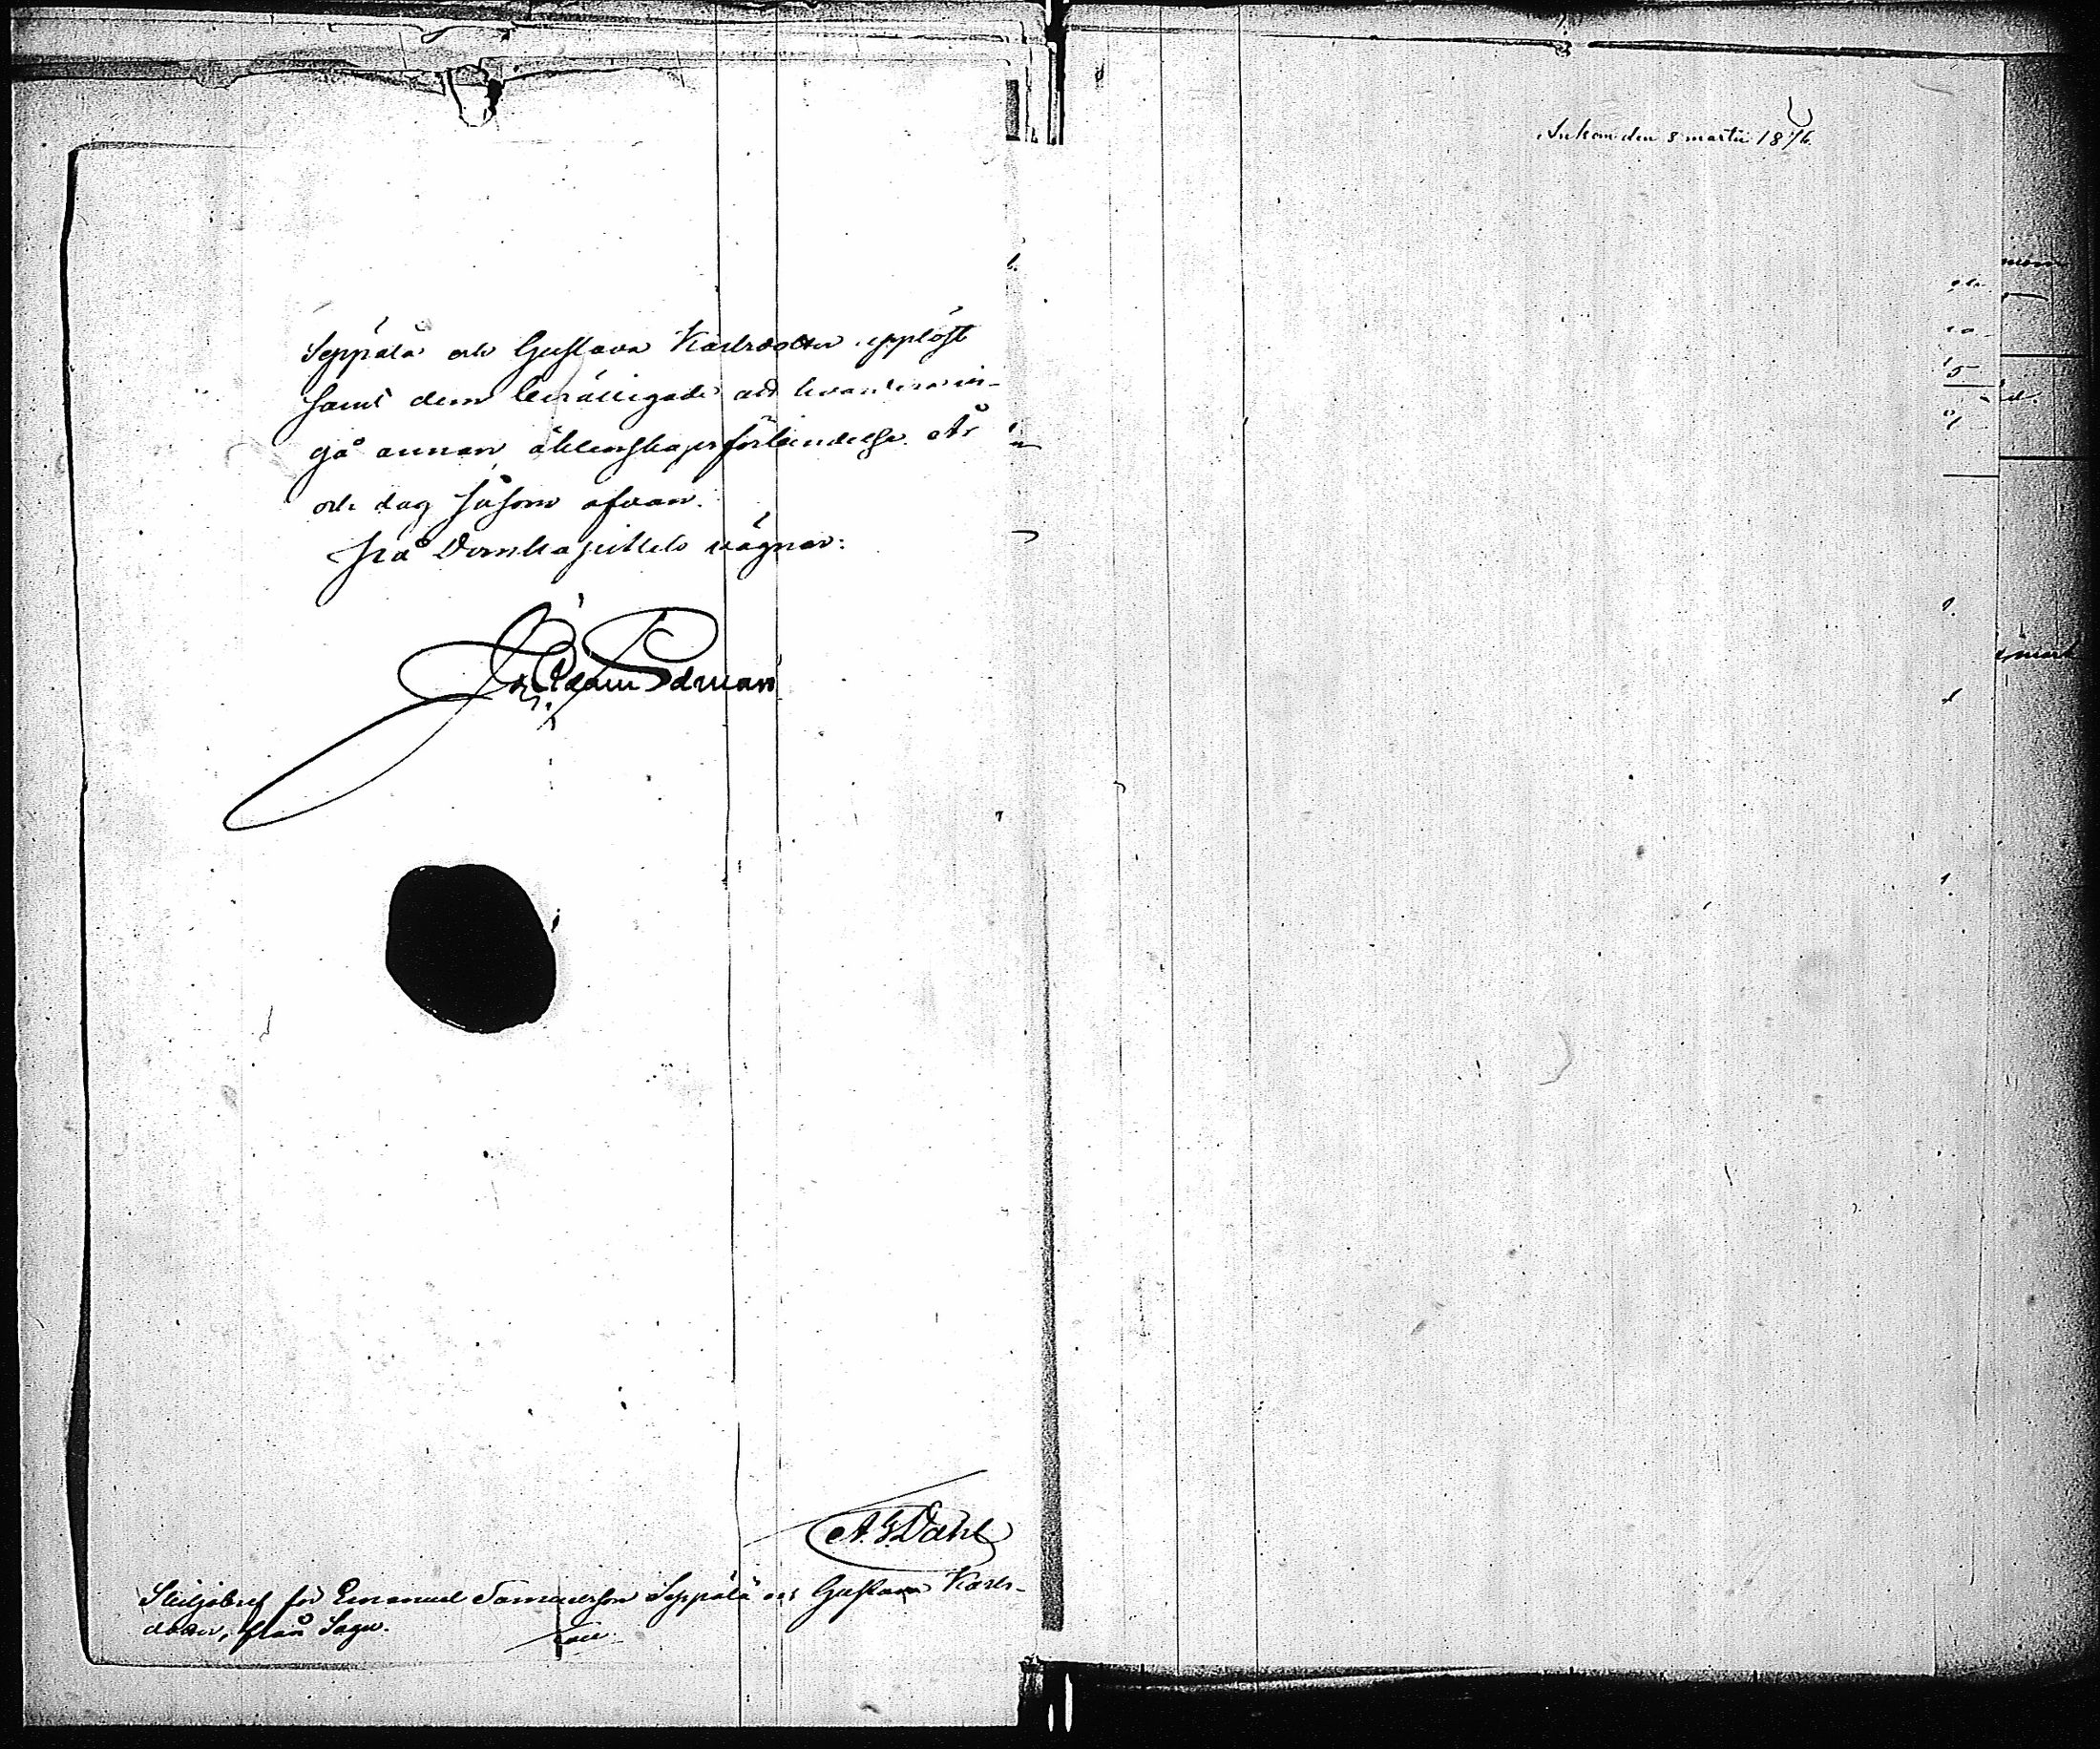 Seppälä och Gustava Karlsdotter upplöst
samt dem berättigade att hvardera in-
gå annan äktenskapsförbindelse. År
och dag såsom ofvan.
På Domkapitlets vägnar:
Adam Edman
A. G. Dahl
Skiljobref för Emanuel Samuelsson Seppälä och Gustava Karls-
dotter, från Sagu.
Inkom den 8 martii 1876.